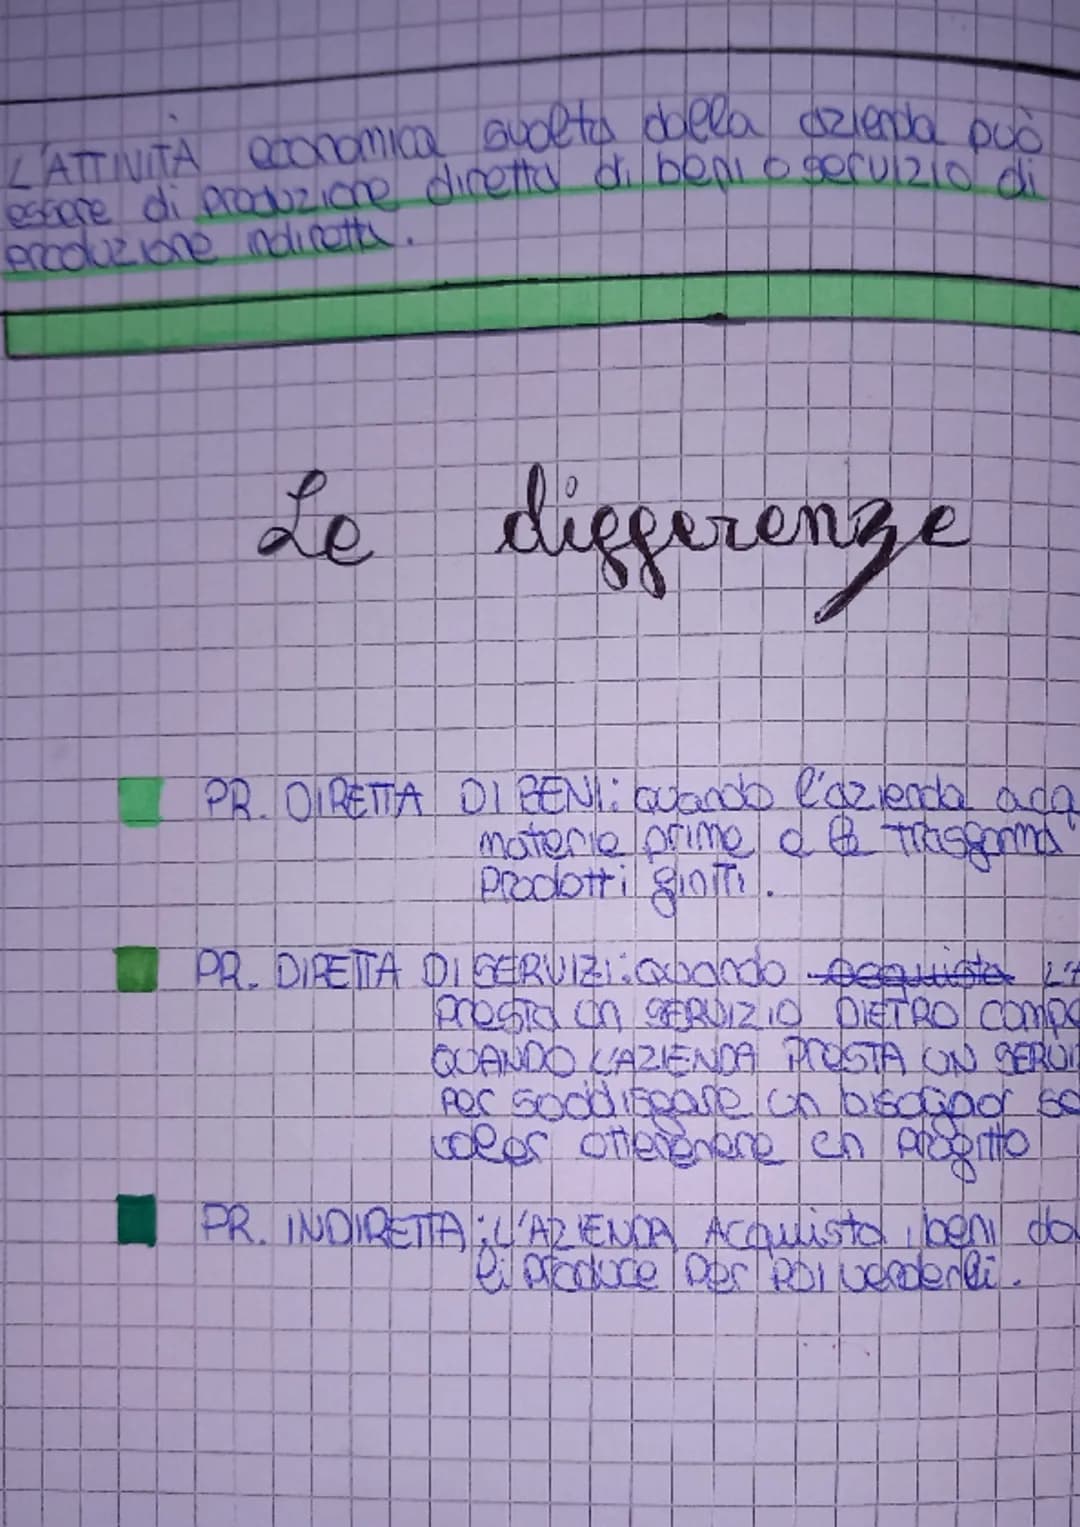 L'ATTIVITÀ economica svolta dalla azienda può
essere di produzione diretta di beni o servizio di
produzione indiretta.
Le differenze
PR. DIRETTA DI BENI: quando l'azienda acq
materie prime e le trasforma
prodotti finiti.
PR. DIRETTA DI SERVIZI: quando acquista L'A
presta un SERVIZIO DIETRO compe
QUANDO L'AZIENDA PRESTA UN SERVI
per soddisfare un bisogno se
voler ottenere un profitto
PR. INDIRETTA: L'AZIENDA Acquista beni da
li produce per poi venderli.